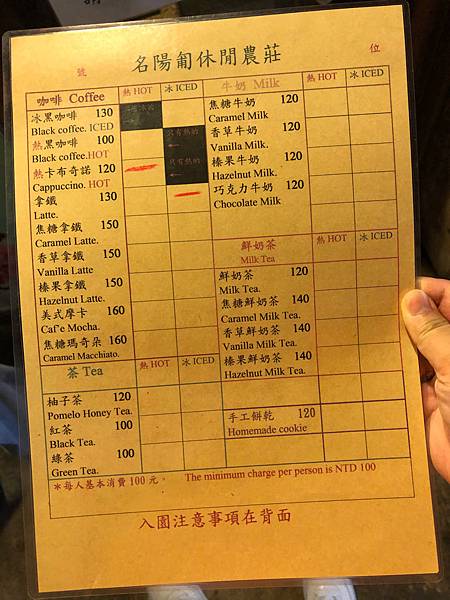 名陽匍休閒農莊
號 位
咖啡 Coffee 熱 HOT 冰 ICED
冰黑咖啡 130
Black coffee. ICED
熱黑咖啡 100
Black coffee.HOT
只有熱的
←
熱卡布奇諾 120
Cappuccino. HOT
只有熱的
←
拿鐵 130
Latte.
焦糖拿鐵 150
Caramel Latte.
香草拿鐵 150
Vanilla Latte
榛果拿鐵 150
Hazelnut Latte.
美式摩卡 160
Caf'e Mocha.
焦糖瑪奇朵 160
Caramel Macchiato.
茶 Tea 熱 HOT 冰 ICED
柚子茶 120
Pomelo Honey Tea.
紅茶 100
Black Tea.
綠茶 100
Green Tea.
牛奶 Milk 熱 HOT 冰 ICED
焦糖牛奶 120
Caramel Milk
香草牛奶 120
Vanilla Milk.
榛果牛奶 120
Hazelnut Milk.
巧克力牛奶 120
Chocolate Milk
鮮奶茶 熱 HOT 冰 ICED
Milk Tea
鮮奶茶 120
Milk Tea.
焦糖鮮奶茶 140
Caramel Milk Tea.
香草鮮奶茶 140
Vanilla Milk Tea.
榛果鮮奶茶 140
Hazelnut Milk Tea.
手工餅乾 120
Homemade cookie
＊每人基本消費100元。 The minimum charge per person is NTD 100
入園注意事項在背面